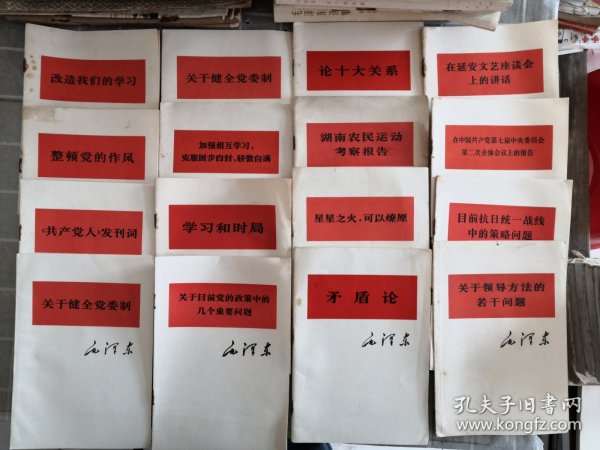 改造我们的学习
关于健全党委制
论十大关系
在延安文艺座谈会
上的讲话
整顿党的作风
加强相互学习，
克服固步自封、骄傲自满
湖南农民运动
考察报告
在中国共产党第七届中央委员会
第二次全体会议上的报告
《共产党人》发刊词
学习和时局
星星之火，可以燎原
目前抗日统一战线
中的策略问题
关于健全党委制
毛泽东
关于目前党的政策中的
几个重要问题
毛泽东
矛盾论
毛泽东
关于领导方法的
若干问题
毛泽东
孔夫子旧书网
www.kongfz.com